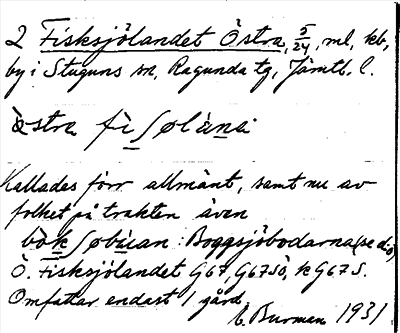 2 Fisksjölandet Östra, 5/24, ml, kb,
by i Stuguns sn, Ragunda tg, Jämtl. l.
östra fìʃølàna
Kallades förr allmänt, samt nu av
folket på trakten även
Boggsjöbodarna (se d.o)
Ö. Fisksjölandet G67, G67SÖ, k G67 S.
Omfattar endast 1 gård.
E. Burman 1931